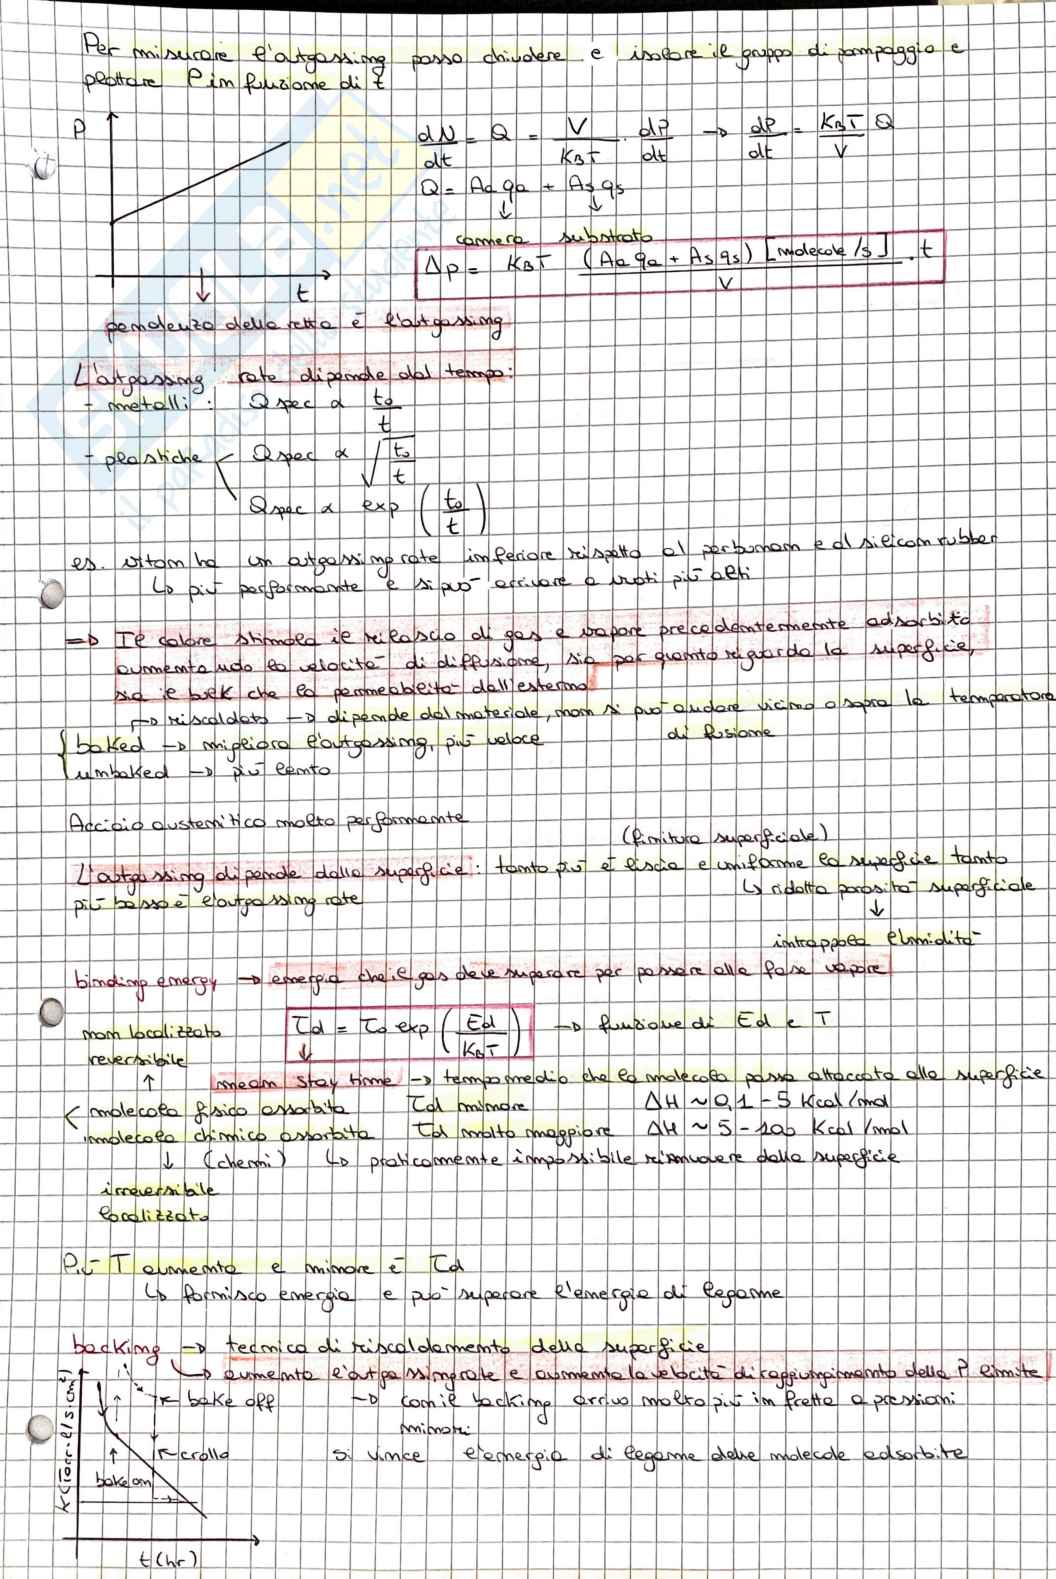 Per misurare l'outgassing posso chiudere e isolare il gruppo di pompaggio e
plottare P in funzione di t
P
dN/dt = Q = V/KBT · dP/dt → dP/dt = KBT/V Q
Q = Aa qa + As qs
camera substrato
Δp = KBT (Aa qa + As qs) [molecole/s] / V · t
t
pendenza della retta è l'outgassing
L'outgassing rate dipende dal tempo:
- metalli: Qspec α t0/t
- plastiche Qspec α √t0/t
Qspec α exp (t0/t)
es. viton ha un outgassing rate inferiore rispetto al perbunam e al silicon rubber
↳ più performante e si può arrivare a vuoti più alti
⇒ Il calore stimola il rilascio di gas e vapore precedentemente adsorbito
aumentando la velocità di diffusione, sia per quanto riguarda la superficie,
sia il bulk che la permeabilità dall'esterno
↱ riscaldato → dipende dal materiale, non si può andare vicino o sopra la temperatura
baked → migliora l'outgassing, più veloce di fusione
unbaked → più lento
Acciaio austenitico molto performante
(finitura superficiale)
L'outgassing dipende dalla superficie: tanto più è liscia e uniforme la superficie tanto
più basso è l'outgassing rate ↳ ridotta porosità superficiale
↓
intrappola l'umidità
binding energy → energia che il gas deve superare per passare alla fase vapore
non localizzato
reversibile
τd = τ0 exp (Ed/KBT) → funzione di Ed e T
↑ mean stay time → tempo medio che la molecola passa attaccata alla superficie
molecola fisico assorbita τd minore ΔH ~ 0,1 - 5 Kcal/mol
molecola chimico assorbita τd molto maggiore ΔH ~ 5 - 100 Kcal/mol
↓ (chemi) ↳ praticamente impossibile rimuovere dalla superficie
irreversibile
localizzato
Più T aumenta e minore è τd
↳ fornisco energia e può superare l'energia di legame
backing → tecnica di riscaldamento della superficie
↳ aumenta l'outgassing rate e aumenta la velocità di raggiungimento della P limite
← bake off → con il backing arrivo molto più in fretta a pressioni
minori
← crollo si vince l'energia di legame delle molecole adsorbite
bake on
K (Torr·l/s cm²)
t (hr)
SKUOLA.net
il paradiso dello studente